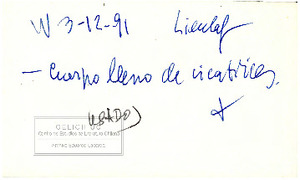 W 3-12-91
— Cuerpo lleno de cicatrices.
(USADO)
CELICH UC
Centro de Estudios de Literatura Chilena